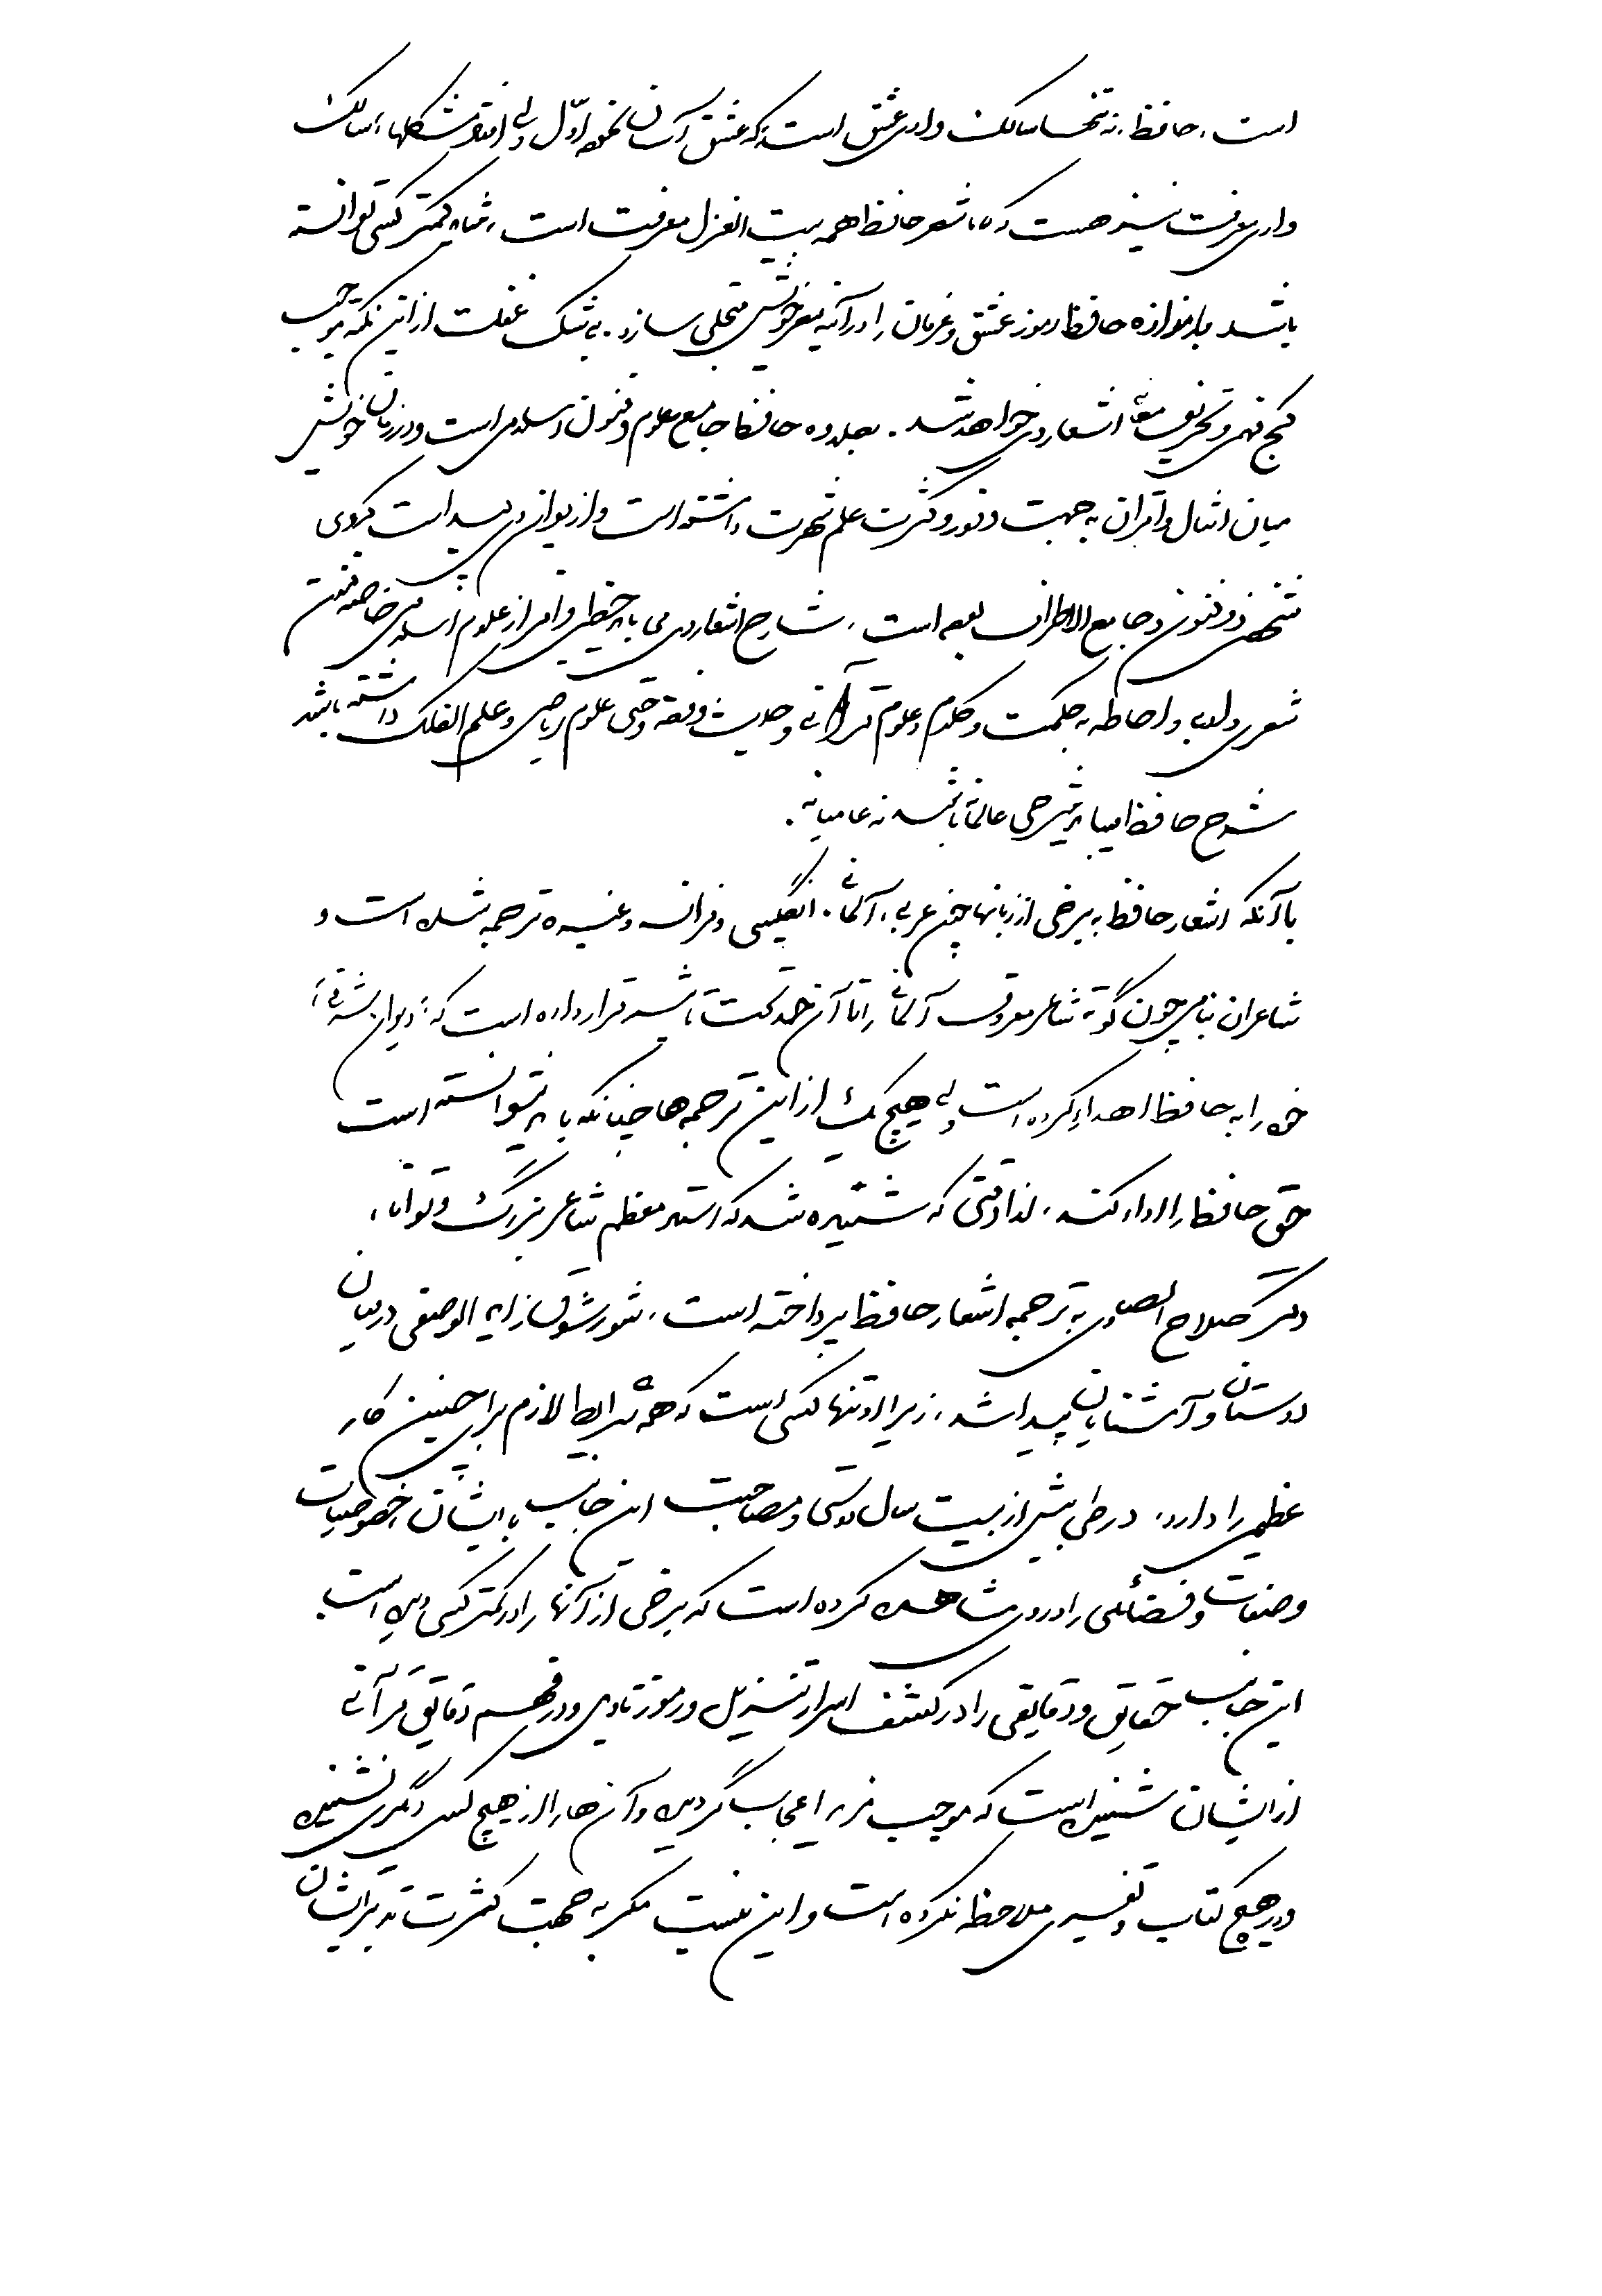 است، حافظ، نه تنها سالک وادی عشق است که عشق آسان نمود اوّل ولی افتاد مشکلها، سالک
وادی معرفت نیز هست که شعر حافظ همه بیت الغزل معرفت است، شاید کمتر کسی توانسته
باشد به اندازه حافظ رموز عشق و عرفان را در آئینه شعر خویش متجلی سازد. بی شک غفلت از این نکته موجب
کج فهمی و تحریف معانی اشعار وی خواهد شد. بعلاوه حافظ جامع علوم و فنون اسلامی است و در زمان خویش
میان امثال و اقران به جهت وفور و کثرت علم شهرت داشته است و از دیوان وی پیداست که وی
شخصی ذو فنون و جامع الاطراف بوده است، شارح اشعار وی می باید حظی وافر از علوم اسلامی خاصه فنون
شعری و ادبی و احاطه به حکمت و کلام و علوم قرآنی و حدیث و فقه و حتی علوم ریاضی و علم الفلک داشته باشد
شرح حافظ میباید شرحی عالمانه باشد نه عامیانه.
با آنکه اشعار حافظ به برخی از زبانها چون عربی، آلمانی، انگلیسی و فرانسه و غیره ترجمه شده است و
شاعران بنامی چون گوته شاعر معروف آلمانی را تا آن حد تحت تأثیر قرار داده است که "دیوان شرقی"
خود را به حافظ اهداء کرده است ولی هیچ یک از این ترجمه ها چنانکه باید نتوانسته است
حق حافظ را اداء کند، لذا وقتی که شنیده شد که استاد معظم شاعر بزرگ و توانا،
دکتر صلاح الصاوی به ترجمه اشعار حافظ پرداخته است، شور و شوق زاید الوصفی در میان
دوستان و آشنایان پیدا شد، زیرا او تنها کسی است که همه شرایط لازم برای چنین کار
عظیمی را دارد، در طی بیش از بیست سال دوستی و مصاحبت این جانب با ایشان، خصوصیات
و صفات و فضائلی را در وی مشاهده کرده است که برخی از آنها را در کمتر کسی دیده است
این جانب حقایق و دقایقی را در کشف اسرار تنزیل و رموز تأویل و در فهم دقایق قرآنی
از ایشان شنیده است که موجب مزید اعجاب گردیده و آن ها را از هیچ کس دیگری نشنیده
و در هیچ کتاب و تفسیری ملاحظه نکرده است و این نیست مگر به جهت کثرت تدبر ایشان